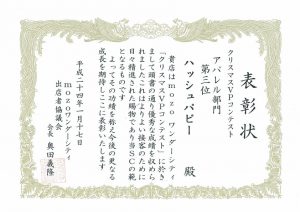 表彰状
クリスマスVPコンテスト
アパレル部門
第三位
ハッシュパピー 殿
貴店はmozoワンダーシティ
「クリスマスVPコンテスト」に於き
まして頭書の通り優秀な成績を収めら
れましたこれはひとえに接客のために
日々精進された賜物であり当SCの範
となるものです
よってその功績を称え今後の更なる
成長を期待しここに表彰いたします
平成二十四年一月十七日
mozoワンダーシティ
出店者協議会
会長 奥田義隆